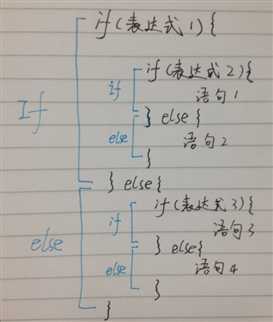 if(表达式1){
if(表达式2){
if
语句1
} else {
else
语句2
}
If
} else {
if(表达式3){
if
语句3
else
} else{
else
语句4
}
}